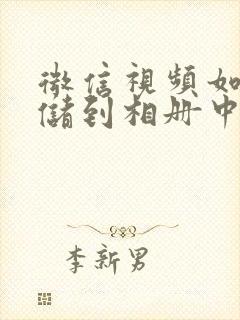 微信視頻如
儲到相册中
李新男